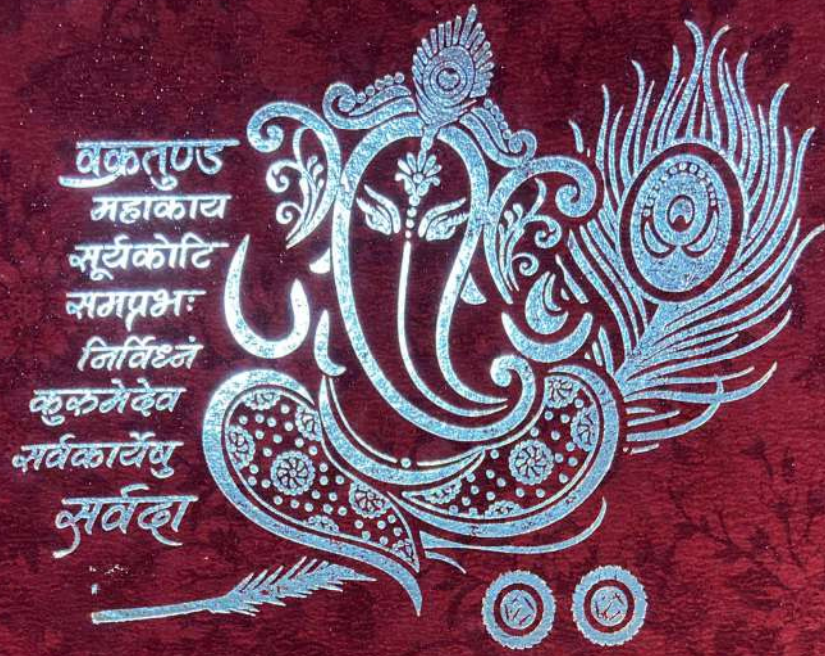 वक्रतुण्ड
महाकाय
सूर्यकोटि
समप्रभः
निर्विध्नं
कुरुमेदेव
सर्वकार्येषु
सर्वदा